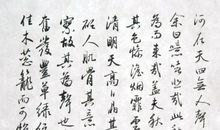 河在天四無人聲
余曰噫嘻悲哉此
為而來哉蓋夫秋
其色慘淡煙霏雲
清明天高日晶其
砭人肌骨其意
寥故其為聲也
奮發豐草綠縟
佳木蔥蘢而可悅